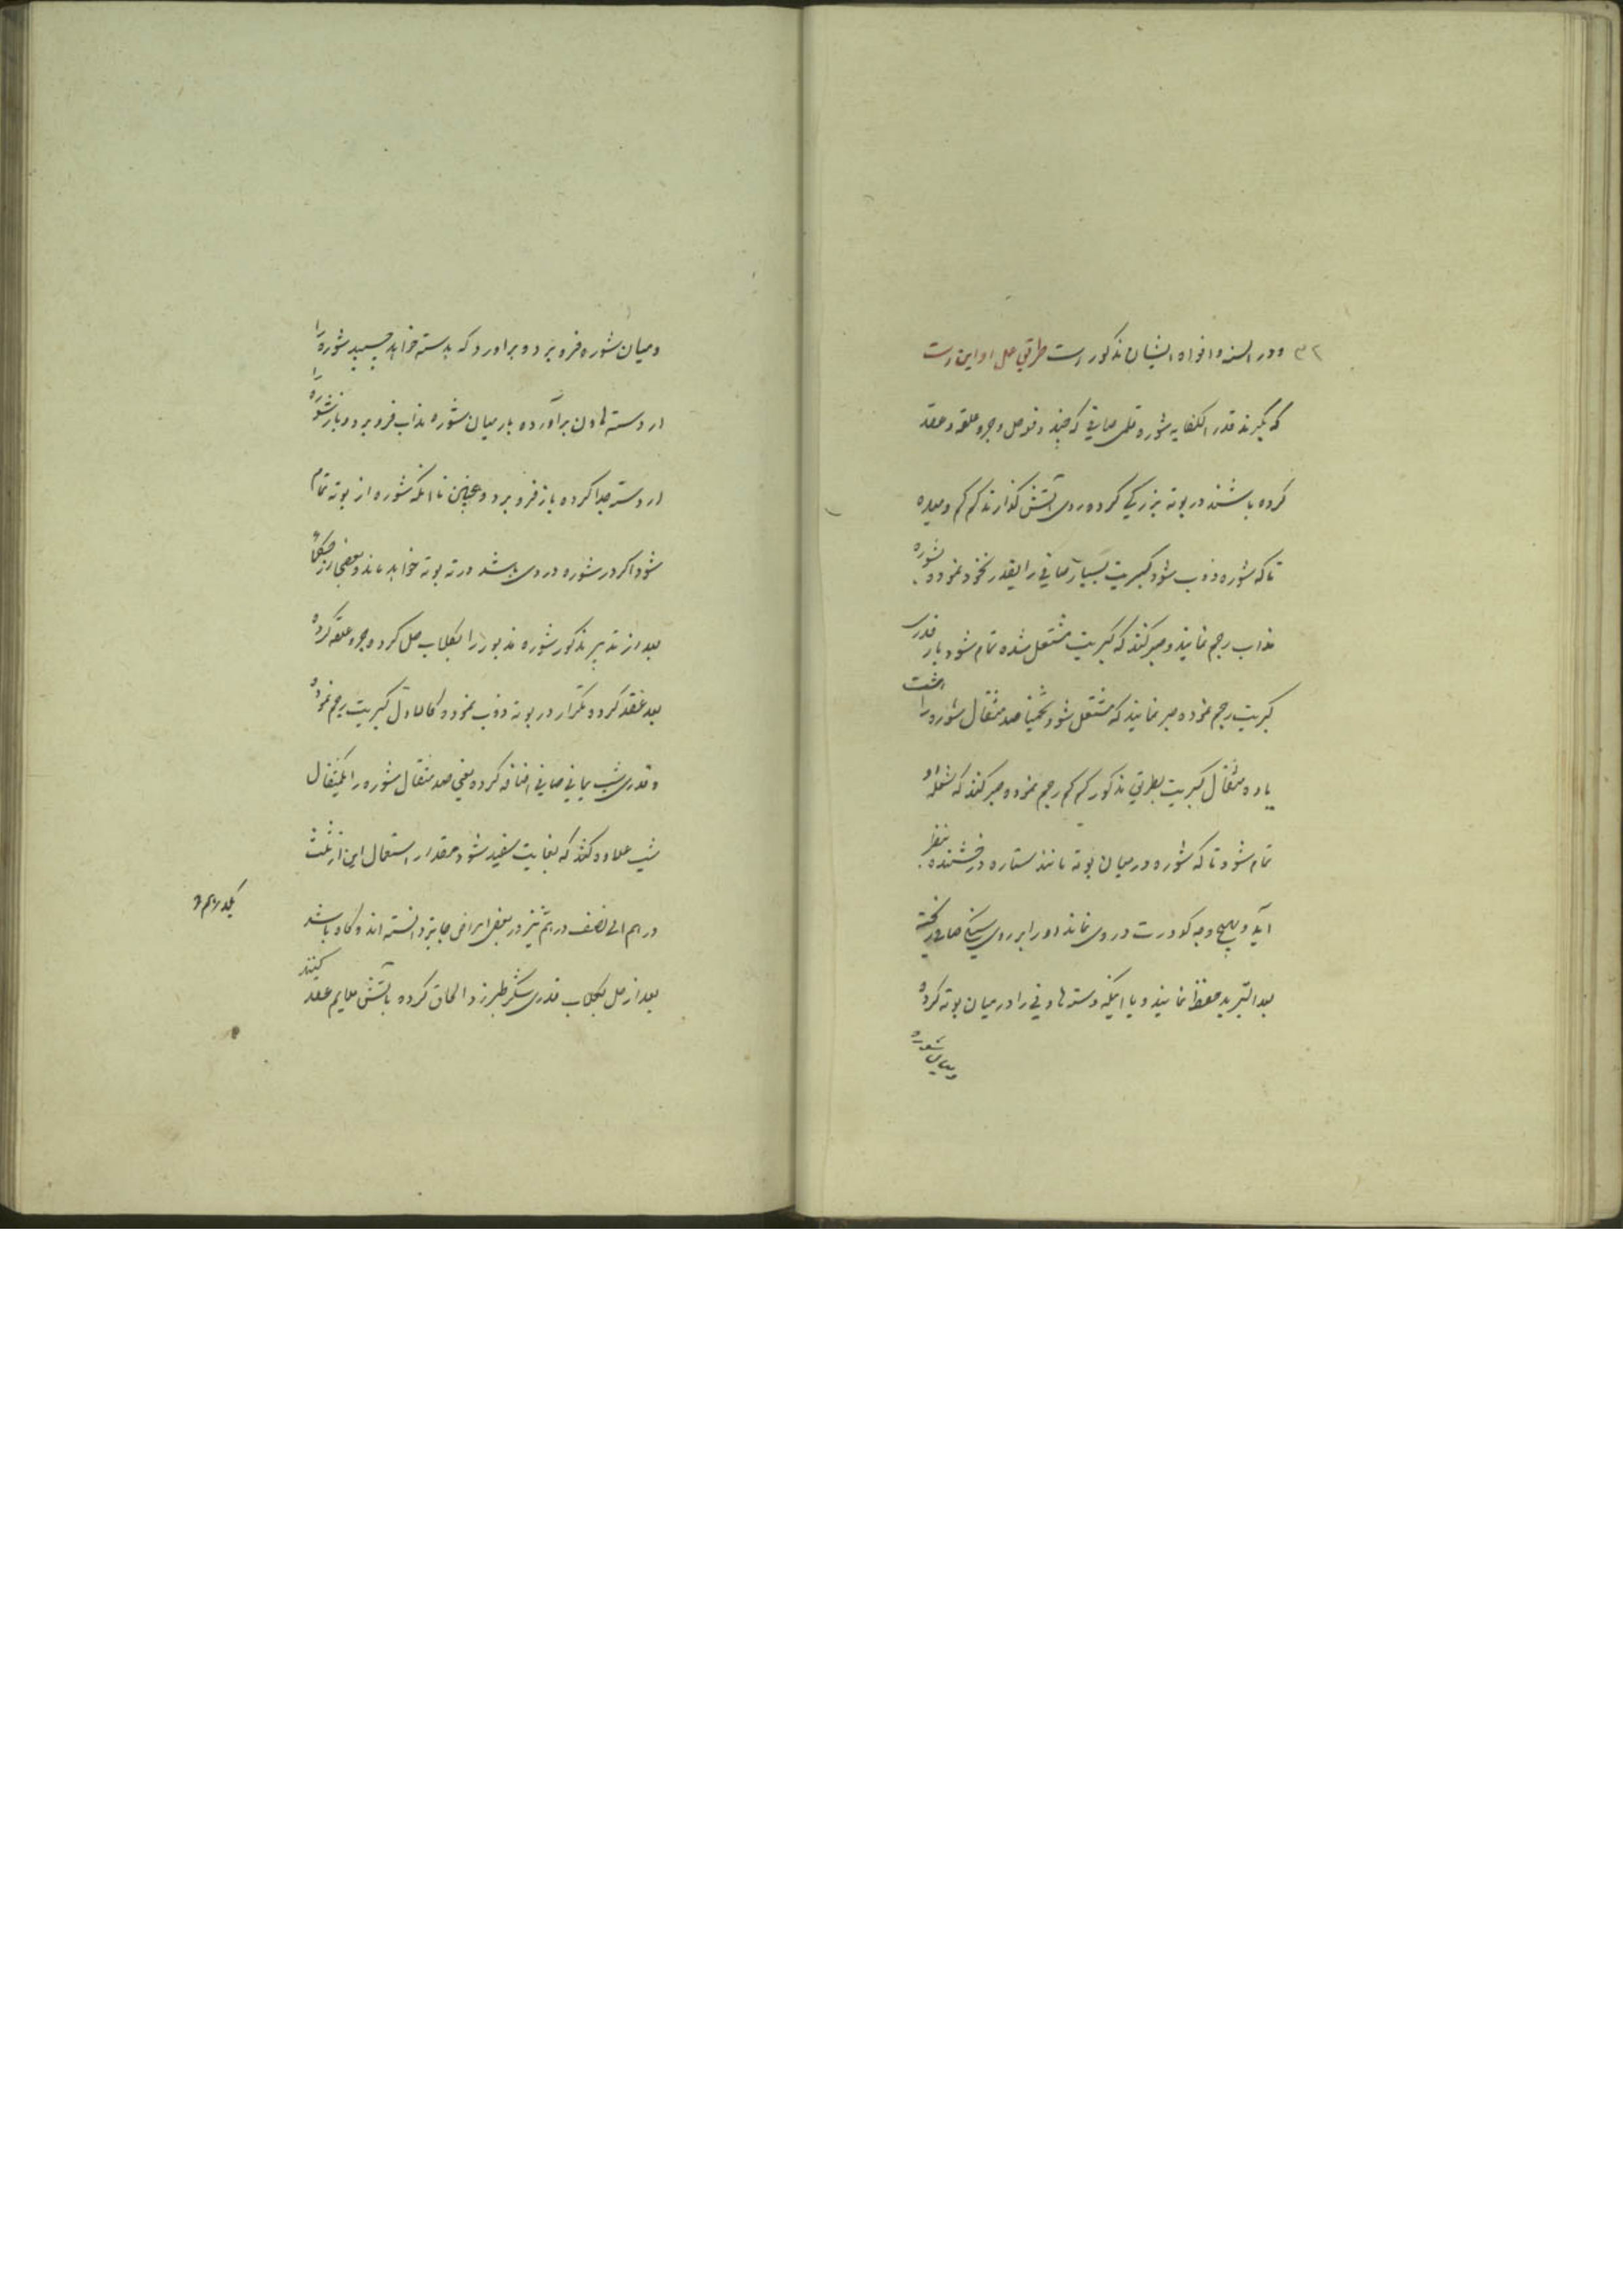 ۳۲ ودر السنه وافواه ایشان مذکور است طریق عمل او این است
که بکیرند قدر الکفایه شوره قلمی صافی که چند دفعه حل و جر و علقه و عقد
کرده باشند در بوته بزرکی کرده روی آتش کذارند کم کم ومیده
تا که شوره ذوب شود کبریت بسیار صافی را بقدر نخود نموده بشوره
مذاب رجم نمایند و صبر کنند که کبریت مشتعل شده تمام شود باز قدری
کبریت رجم نموده صبر نمایند که مشتعل شود تخمینا صد مثقال شوره را هشت
یا ده مثقال کبریت بطریق مذکور کم کم رجم نموده صبر کنند که شعله او
تمام شود تا که شوره در میان بوته مانند ستاره درخشنده بنظر
آید و بهیچ وجه کدورت در وی نماند او را بر روی سنک صافی ریخته
بعد التبرید حفظ نمایند و یا اینکه دسته هاونی را در میان بوته کرده
ومیان شوره
ومیان شوره فرو برد و براورد که بدسته خواهد چسبید شوره را
از دسته هاون برآورده باز میان شوره مذاب فرو برد و باز شوره را
از دسته جدا کرده باز فرو برد و همچنین تا آنکه شوره از بوته تمام
شود اکر در شوره دردی باشد در ته بوته خواهد ماند و بعضی از حکما
بعد از تدبیر مذکور شوره مذبور را بکلاب حل کرده و جر و علقه کرده
بعد عقد کرده و بتکرار در بوته ذوب نموده و کالاول کبریت رجم نموده
و قدری شب یمانی صافی اضافه کرده یعنی صد مثقال شوره را یکمثقال
شب علاوه کنند که بغایت سفید شود و مقدار استعمال این از ثلث
درهم الی نصف درهم نیز در بعضی امراض جایز دانسته اند و کاه باشد
یکدرهم و
بعد از حل بکلاب قدری شکر طبرزد الحاق کرده بآتش ملایم عقد کنند